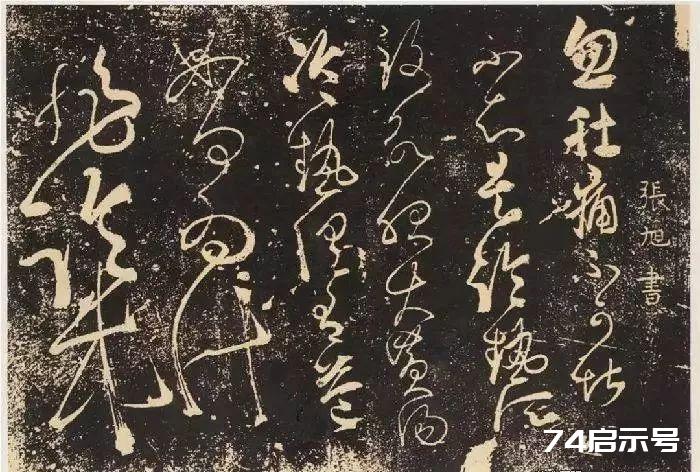 張旭書
忽肚痛不可堪
不知是冷熱所
致欲服大黃湯
冷熱俱有益
如何為計
74启示号